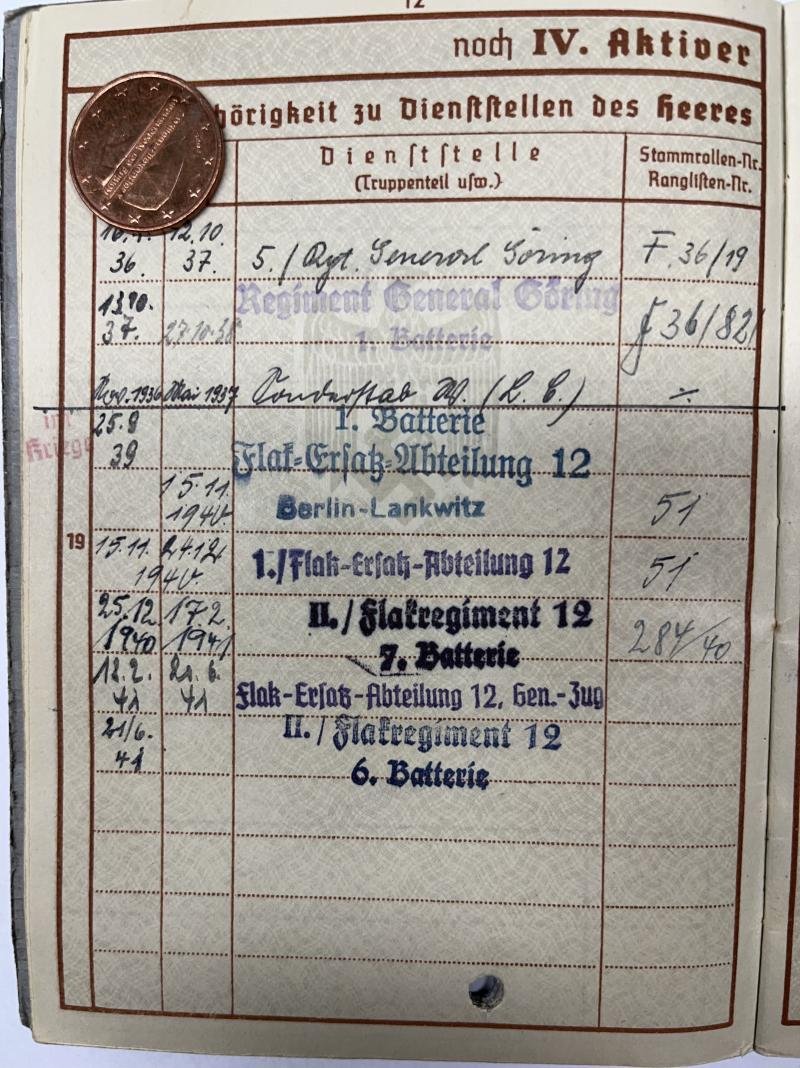 12
noch IV. Aktiver
hörigkeit zu Dienststellen des Heeres
Dienststelle
(Truppenteil usw.)
Stammrollen-Nr.
Ranglisten-Nr.
12.10.
36. 37. 5./Rgt. General Göring F. 36/19
13.10.
37. 27.10.38 Regiment General Göring
1. Batterie 36/82
Nov. 1936 Mai 1937 Sonderstab W. (L.C.) ./.
im Kriege
25.8
39
1. Batterie
Flak-Ersatz-Abteilung 12
15.11.
1940.
Berlin-Lankwitz 51
19
15.11. 24.12.
1940. 1./Flak-Ersatz-Abteilung 12 51
25.12. 17.2.
1940 1941
II./Flakregiment 12
7. Batterie 284/40
18.2. 20.6.
41 41 Flak-Ersatz-Abteilung 12, Gen.-Zug
21/6.
41
II./Flakregiment 12
6. Batterie